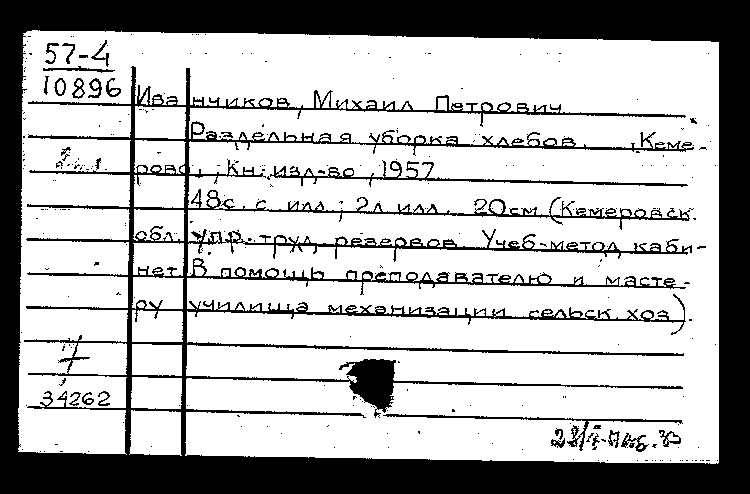 57-4
10896
Иванчиков, Михаил Петрович
Раздельная уборка хлебов. , Кеме-
рово, , Кн. изд-во , 1957
48с. с илл.; 2л илл. 20см (Кемеровск.
обл. упр. труд. резервов. Учеб-метод. каби-
нет В помощь преподавателю и масте-
ру училища механизации сельск. хоз).
34262